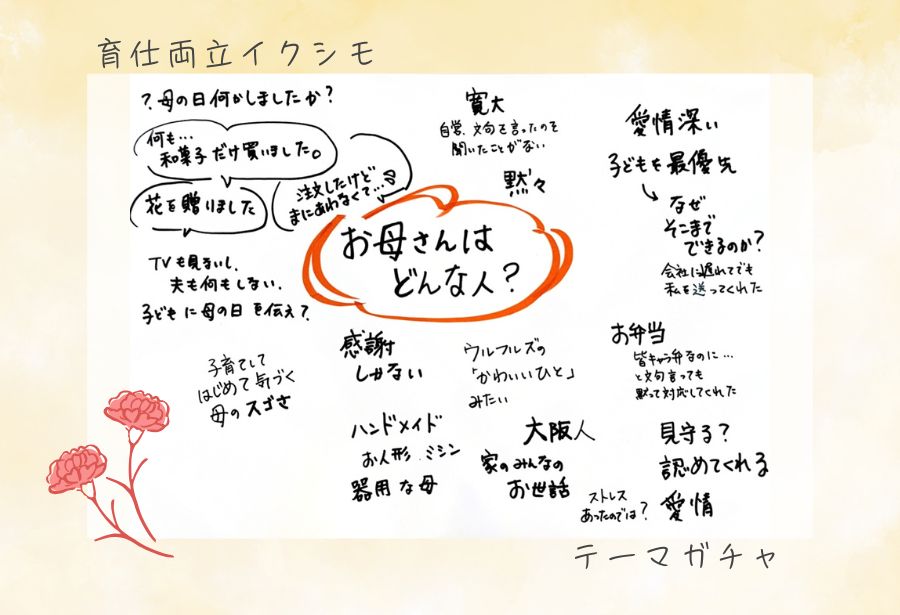 育仕両立イクシモ
?母の日何かしましたか?
何も…
和菓子だけ買いました。
花を贈りました
注文したけど
まにあわなくて…
TVも見ないし、
夫も何もしない、
子どもに母の日を伝え?
寛大
自営、文句を言ったのを
聞いたことがない
黙々
愛情深い
子どもを最優先
なぜ
そこまで
できるのか?
会社に遅れてでも
私を送ってくれた
お母さんは
どんな人?
子育てして
はじめて気づく
母のスゴさ
感謝
しかない
ウルフルズの
「かわいいひと」
みたい
お弁当
皆キャラ弁なのに…
と文句言っても
黙って対応してくれた
ハンドメイド
お人形、ミシン
器用な母
大阪人
家のみんなの
お世話
見守る?
認めてくれる
ストレス
あったのでは?
愛情
テーマガチャ